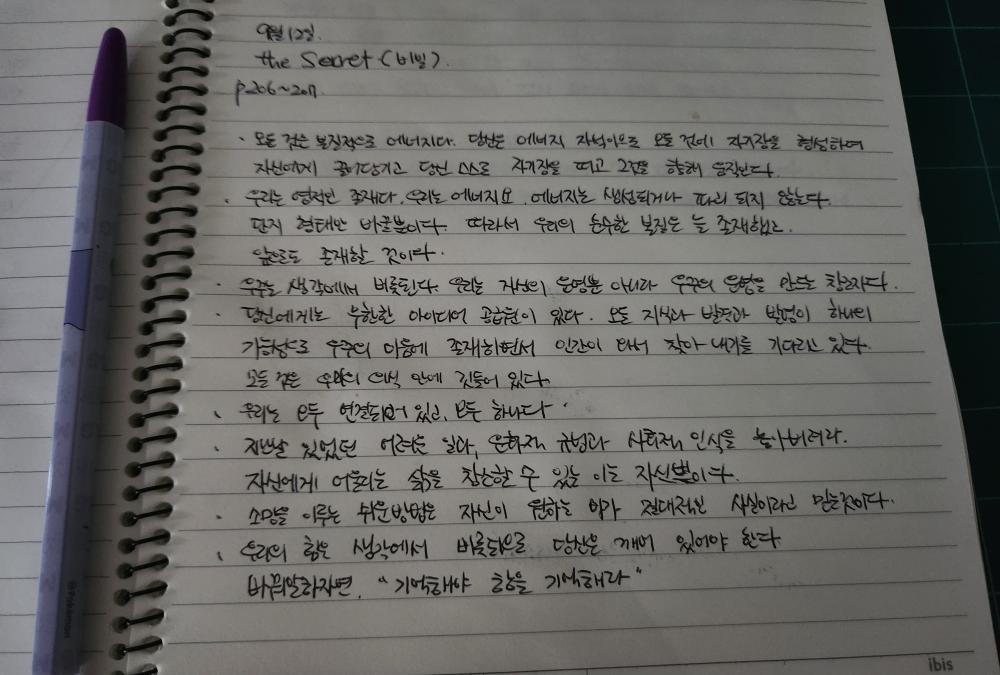 9월 12일.
the Secret (비밀).
p.206~207.
· 모든 것은 본질적으로 에너지다. 당신은 에너지 자석이므로 모든 것에 자기장을 형성하여
자신에게 끌어당기고 당신 스스로 자기장을 띠고 그것을 향해 움직인다.
· 우리는 영적인 존재다. 우리는 에너지요, 에너지는 생성되거나 파괴 되지 않는다.
단지 형태만 바꿀뿐이다. 따라서 우리의 순수한 본질은 늘 존재했고,
앞으로도 존재할 것이다.
· 우주는 생각에서 비롯된다. 우리는 자신의 운명뿐 아니라 우주의 운명을 만드는 창조자다.
· 당신에게는 무한한 아이디어 공급원이 있다. 모든 지식과 발견과 발명이 하나의
가능성으로 우주의 마음에 존재하면서 인간이 와서 찾아 내기를 기다리고 있다.
모든 것은 우리의 의식 안에 깃들어 있다.
· 우리는 모두 연결되어 있고, 모두 하나다.
· 지난날 있었던 어려운 일과, 문화적 규범과 사회적 인식을 놓아버려라.
자신에게 어울리는 삶을 창조할 수 있는 이는 자신뿐이다.
· 소망을 이루는 쉬운방법은 자신이 원하는 바가 절대적인 사실이라고 믿는것이다.
· 우리의 힘은 생각에서 비롯되므로 당신은 깨어 있어야 한다
바꿔말하자면, "기억해야 함을 기억해라"
ibis